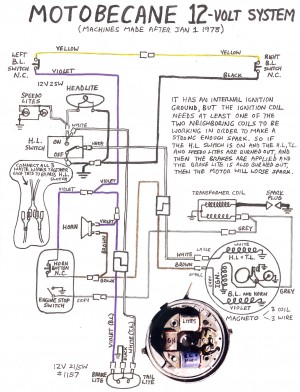 MOTOBECANE 12-VOLT SYSTEM
(MACHINES MADE AFTER JAN 1 1978)
YELLOW
YELLOW
LEFT
B.L.
SWITCH
N.C.
RIGHT
B.L.
SWITCH
N.C.
VIOLET
BLACK
12V 25W
HEADLITE
SPEEDO
LITES
WHITE
H.L.
SWITCH
ON
OFF
IT HAS AN INTERNAL IGNITION
GROUND, BUT THE IGNITION COIL
NEEDS AT LEAST ONE OF THE
TWO NEIGHBORING COILS TO BE
WORKING IN ORDER TO MAKE A
STRONG ENOUGH SPARK. SO IF
THE H.L. SWITCH IS ON AND THE H.L. T.L.
AND SPEEDO LITES ARE BURNED OUT, AND
THEN THE BRAKES ARE APPLIED AND
THE BRAKE LITE IS ALSO BURNED OUT,
THEN THE MOTOR WILL LOOSE SPARK.
CONNECT ALL 3
WHITE WIRES TOGETHER
VIOLET
VIOLET
HORN
BROWN
TRANSFORMER COIL
SPARK
PLUG
GREY
HORN
BUTTON
N.C.
ENGINE STOP
SWITCH
GREY
WHITE
LARGE
BROWN
SMALL
WHITE
H.L. + T.L.
IGN.
B.L. AND HORN
VIOLET
GREY
MAGNETO
3 COIL
3 WIRE
VIOLET (B.L.)
BROWN (T.L.)
LITES
IGN
12V 21/5W
#1157
BRAKE
LITE
TAIL
LITE